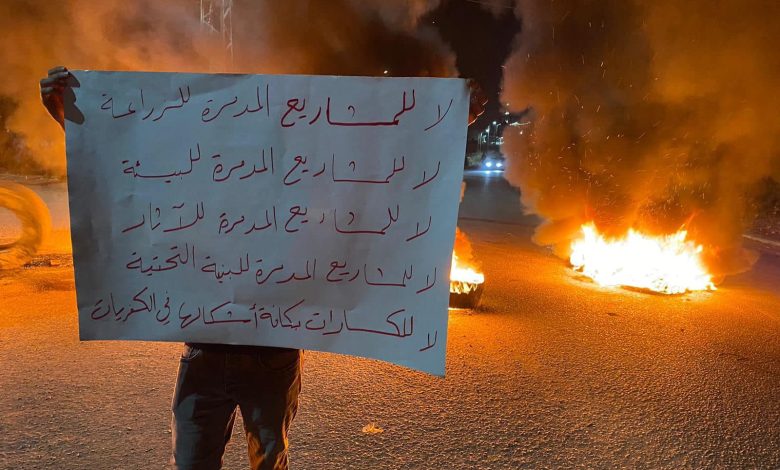 لا للمشاريع المدمرة للزراعة
لا للمشاريع المدمرة للبيئة
لا للمشاريع المدمرة للآثار
لا للمشاريع المدمرة للبنية التحتية
لا للكسارات بكافة أشكالها في الكعربات